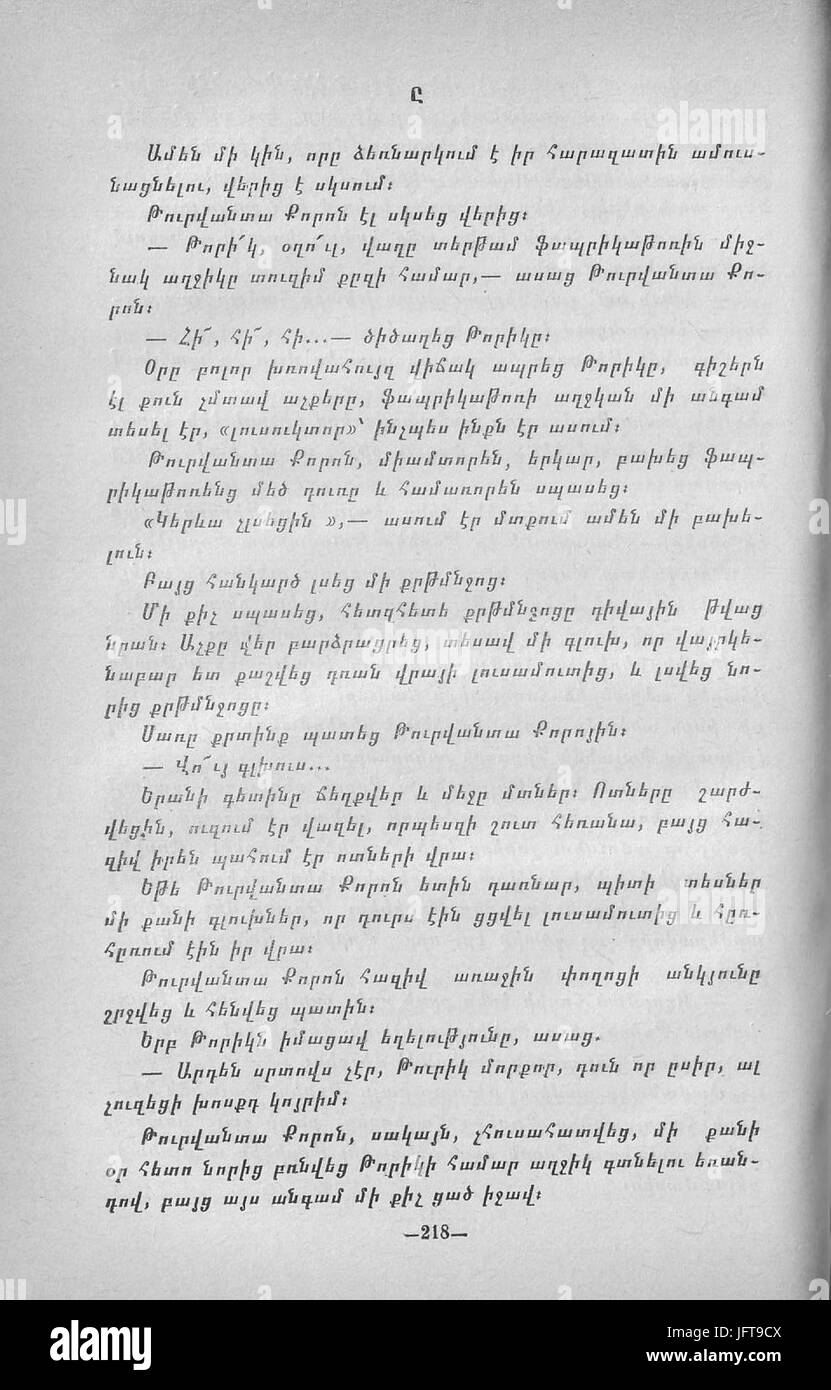 Ը
Ամեն մի կին, որը ձեռնարկում է իր հարազատին ամուս-
նացնելու, վերից է սկսում։
Թուրվանտա Քորոն էլ սկսեց վերից։
— Թորի՛կ, օղո՛ւլ, վաղը տերթամ ֆապրիկաթոռին միջ-
նակ աղջիկը տուզիմ քըզի համար,— ասաց Թուրվանտա Քո-
րոն։
— Հի՜, հի՜, հի...— ծիծաղեց Թորիկը։
Օրը բոլոր խռովահույզ վիճակ ապրեց Թորիկը, գիշերն
էլ քուն չմտավ աչքերը, ֆապրիկաթոռի աղջկան մի անգամ
տեսել էր, «լուսուկտոր»՝ ինչպես ինքն էր ասում։
Թուրվանտա Քորոն, միամտորեն, երկար, բախեց ֆապ-
րիկաթոռենց մեծ դուռը և համառորեն սպասեց։
«Կերևա չլսեցին »,— ասում էր մտքում ամեն մի բախե-
լուն։
Բայց հանկարծ լսեց մի քրթմնջոց։
Մի քիչ սպասեց, հետզհետե քրթմնջոցը դիվային թվաց
նրան։ Աչքը վեր բարձրացրեց, տեսավ մի գլուխ, որ վայրկե-
նաբար ետ քաշվեց դռան վրայի լուսամուտից, և լսվեց նո-
րից քրթմնջոցը։
Սառը քրտինք պատեց Թուրվանտա Քորոյին։
— Վո՜ւյ գլխուս...
Երանի գետինը ճեղքվեր և մեջը մտներ։ Ոտները շարժ-
վեցին, ուզում էր վազել, որպեսզի շուտ հեռանա, բայց հա-
զիվ իրեն պահում էր ոտների վրա։
Եթե Թուրվանտա Քորոն ետին դառնար, պիտի տեսներ
մի քանի գլուխներ, որ դուրս էին ցցվել լուսամուտից և հըռ-
հըռում էին իր վրա։
Թուրվանտա Քորոն հազիվ առաջին փողոցի անկյունը
շրջվեց և հենվեց պատին։
Երբ Թորիկն իմացավ եղելությունը, ասաց.
— Արդեն սրտովս չէր, Թուրիկ մորքոր, դուն որ ըսիր, ալ
չուզեցի խոսքդ կոյրիմ։
Թուրվանտա Քորոն, սակայն, չհուսահատվեց, մի քանի
օր հետո նորից բռնվեց Թորիկի համար աղջիկ գտնելու եռան-
դով, բայց այս անգամ մի քիչ ցած իջավ։
—218—
alamy
alamy
alamy
Image ID: JFT9CX
www.alamy.com